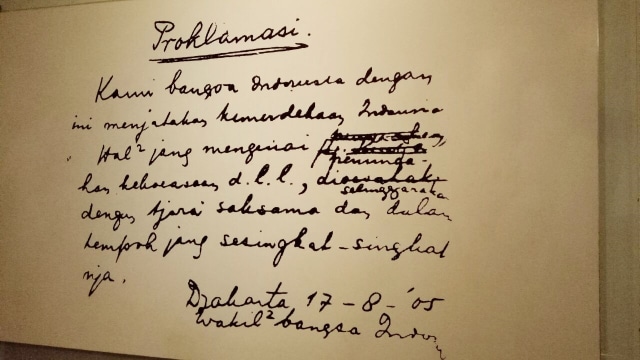 Proklamasi.
Kami bangsa Indonesia dengan
ini menjatakan kemerdekaan Indonesia
Hal² jang mengenai peminda-
han kekoeasaan d.l.l., diselenggarakan
dengan tjara saksama dan dalam
tempoh jang sesingkat-singkat
nja.
Djakarta 17 - 8 - '05
Wakil² bangsa